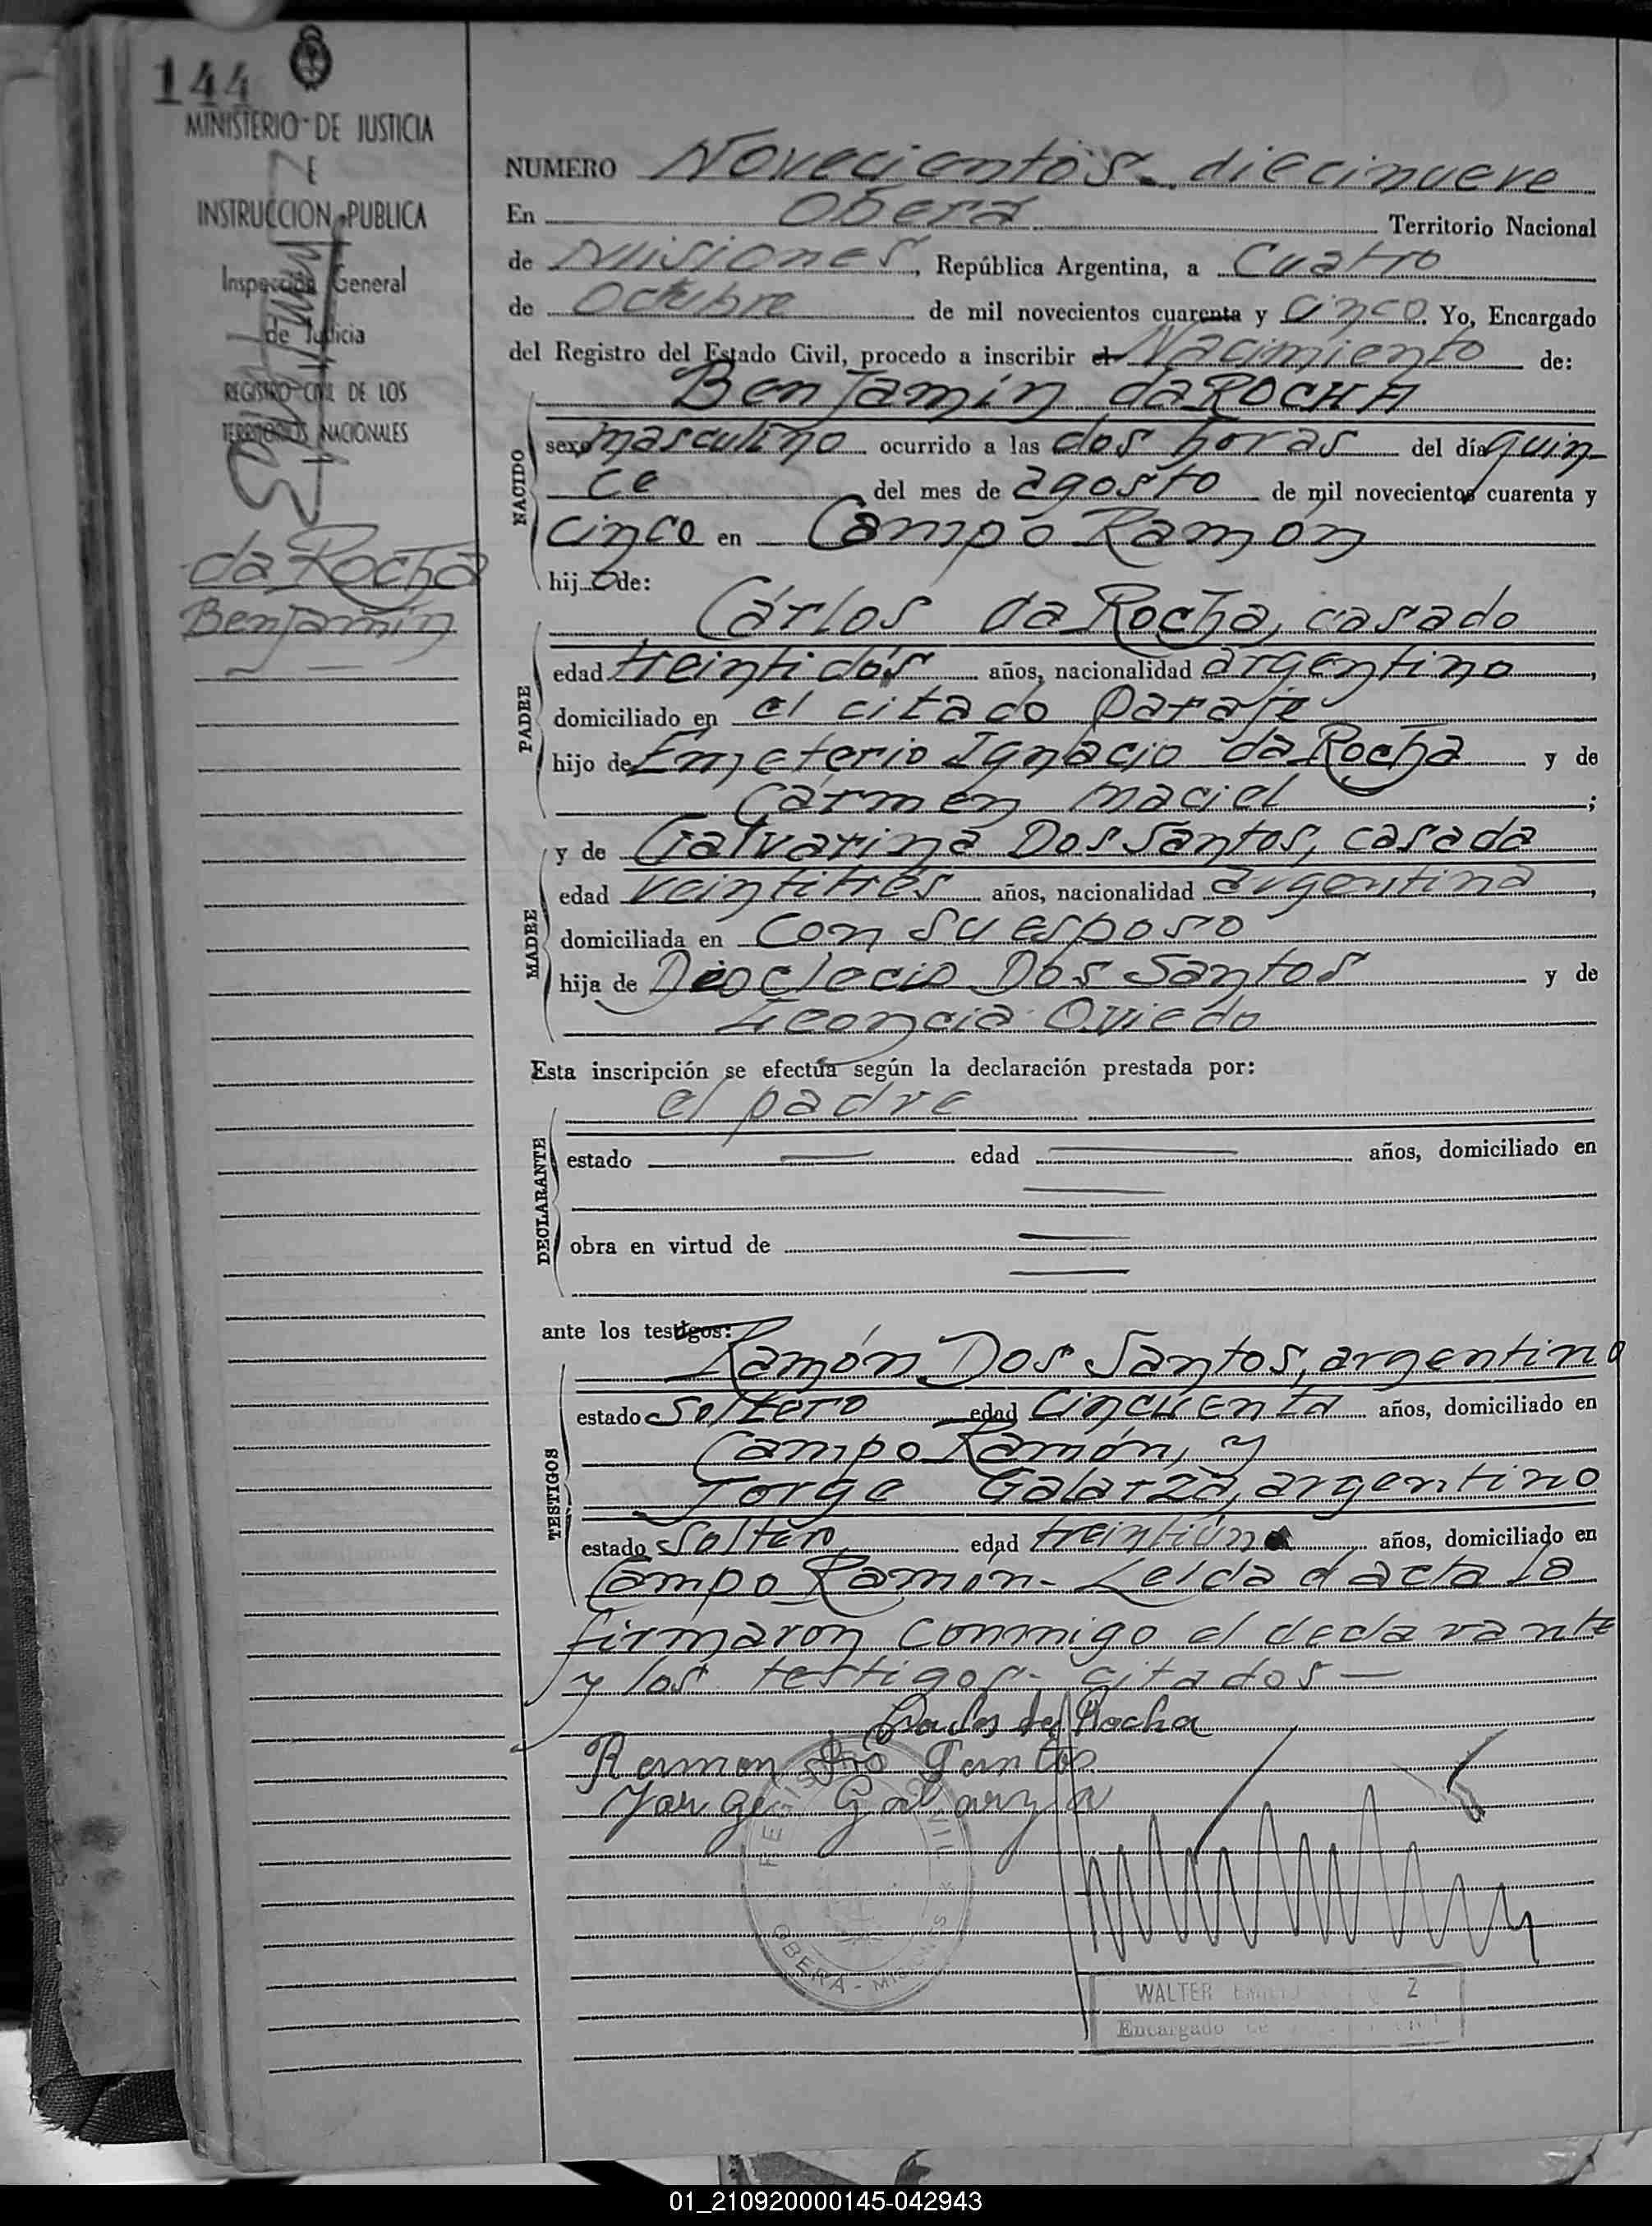 144
MINISTERIO DE JUSTICIA
E
INSTRUCCION PUBLICA
Inspección General
de Justicia
REGISTRO CIVIL DE LOS
TERRITORIOS NACIONALES
da Rocha
Benjamín
NUMERO Novecientos diecinueve
En Oberá Territorio Nacional
de Misiones, República Argentina, a Cuatro
de Octubre de mil novecientos cuarenta y cinco. Yo, Encargado
del Registro del Estado Civil, procedo a inscribir el Nacimiento de:
Benjamín da ROCHA
NACIDO
sexo masculino ocurrido a las dos horas del día quin-
ce del mes de agosto de mil novecientos cuarenta y
cinco en Campo Ramón
hijo de:
PADRE
Cárlos da Rocha, casado
edad treintidós años, nacionalidad argentino,
domiciliado en el citado paraje
hijo de Emeterio Ignacio da Rocha y de
Cármen Maciel;
MADRE
y de Galvarina Dos Santos, casada
edad veintitrés años, nacionalidad argentina,
domiciliada en con su esposo
hija de Dioclecio Dos Santos y de
Leoncia Oviedo
Esta inscripción se efectúa según la declaración prestada por:
DECLARANTE
el padre
estado edad años, domiciliado en
obra en virtud de
ante los testigos:
TESTIGOS
Ramón Dos Santos, argentino
estado soltero edad cincuenta años, domiciliado en
Campo Ramón, y
Jorge Galarza, argentino
estado soltero edad treintiún años, domiciliado en
Campo Ramón. Leída el acta la
firmaron conmigo el declarante
y los testigos citados
Carlos da Rocha
Ramon Do Santos
Jorge Galarza
REGISTRO CIVIL
OBERA - MISIONES
WALTER
Encargado de
01_210920000145-042943